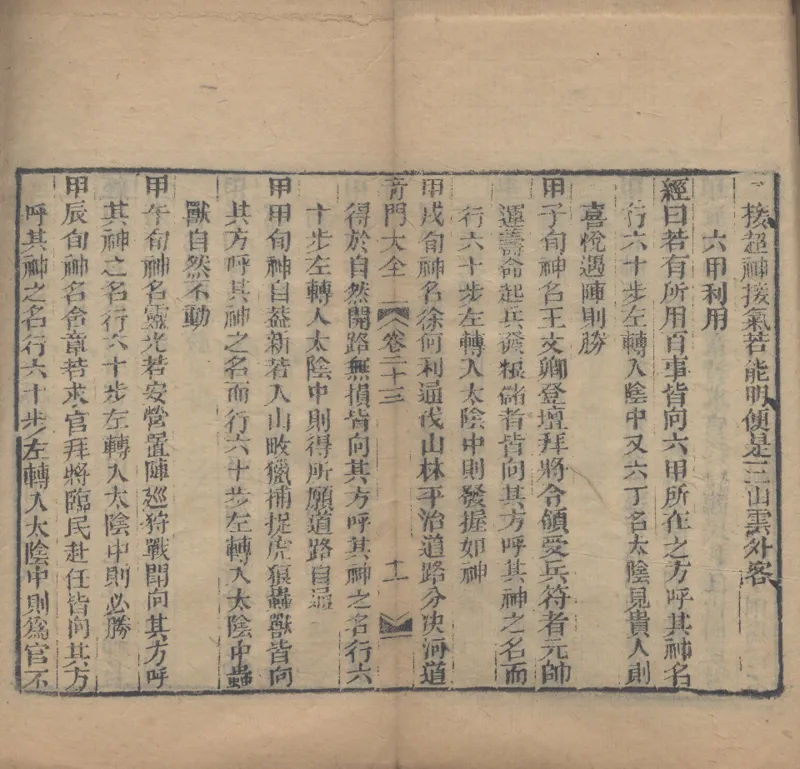 接超神接氣若能明便是三山雲外客
六甲利用
經曰若有所用百事皆向六甲所在之方呼其神名
行六十步左轉入陰中又六丁名太陰見貴人則
喜悅遇陣則勝
甲子旬神名王文卿登壇拜將令領受兵符者元帥
運籌命起兵發粮儲者皆向其方呼其神之名而
行六十步左轉入太陰中則發握如神
甲戌旬神名徐何利通伐山林平治道路分决海道
奇門大全 卷二十三 十一
得於自然開路無損皆向其方呼其神之名行六
十步左轉入太陰中則得所願道路自通
甲申旬神自益新若入山畋獵捕捉虎狼蟲獸皆向
其方呼其神之名而行六十步左轉入太陰中蟲
獸自然不動
甲午旬神名靈光若安營置陣廵狩戰鬪向其方呼
其神之名行六十步左轉入太陰中則必勝
甲辰旬神名含章若求官拜將臨民赴任皆向其方
呼其神之名行六十步左轉入太陰中則爲官不